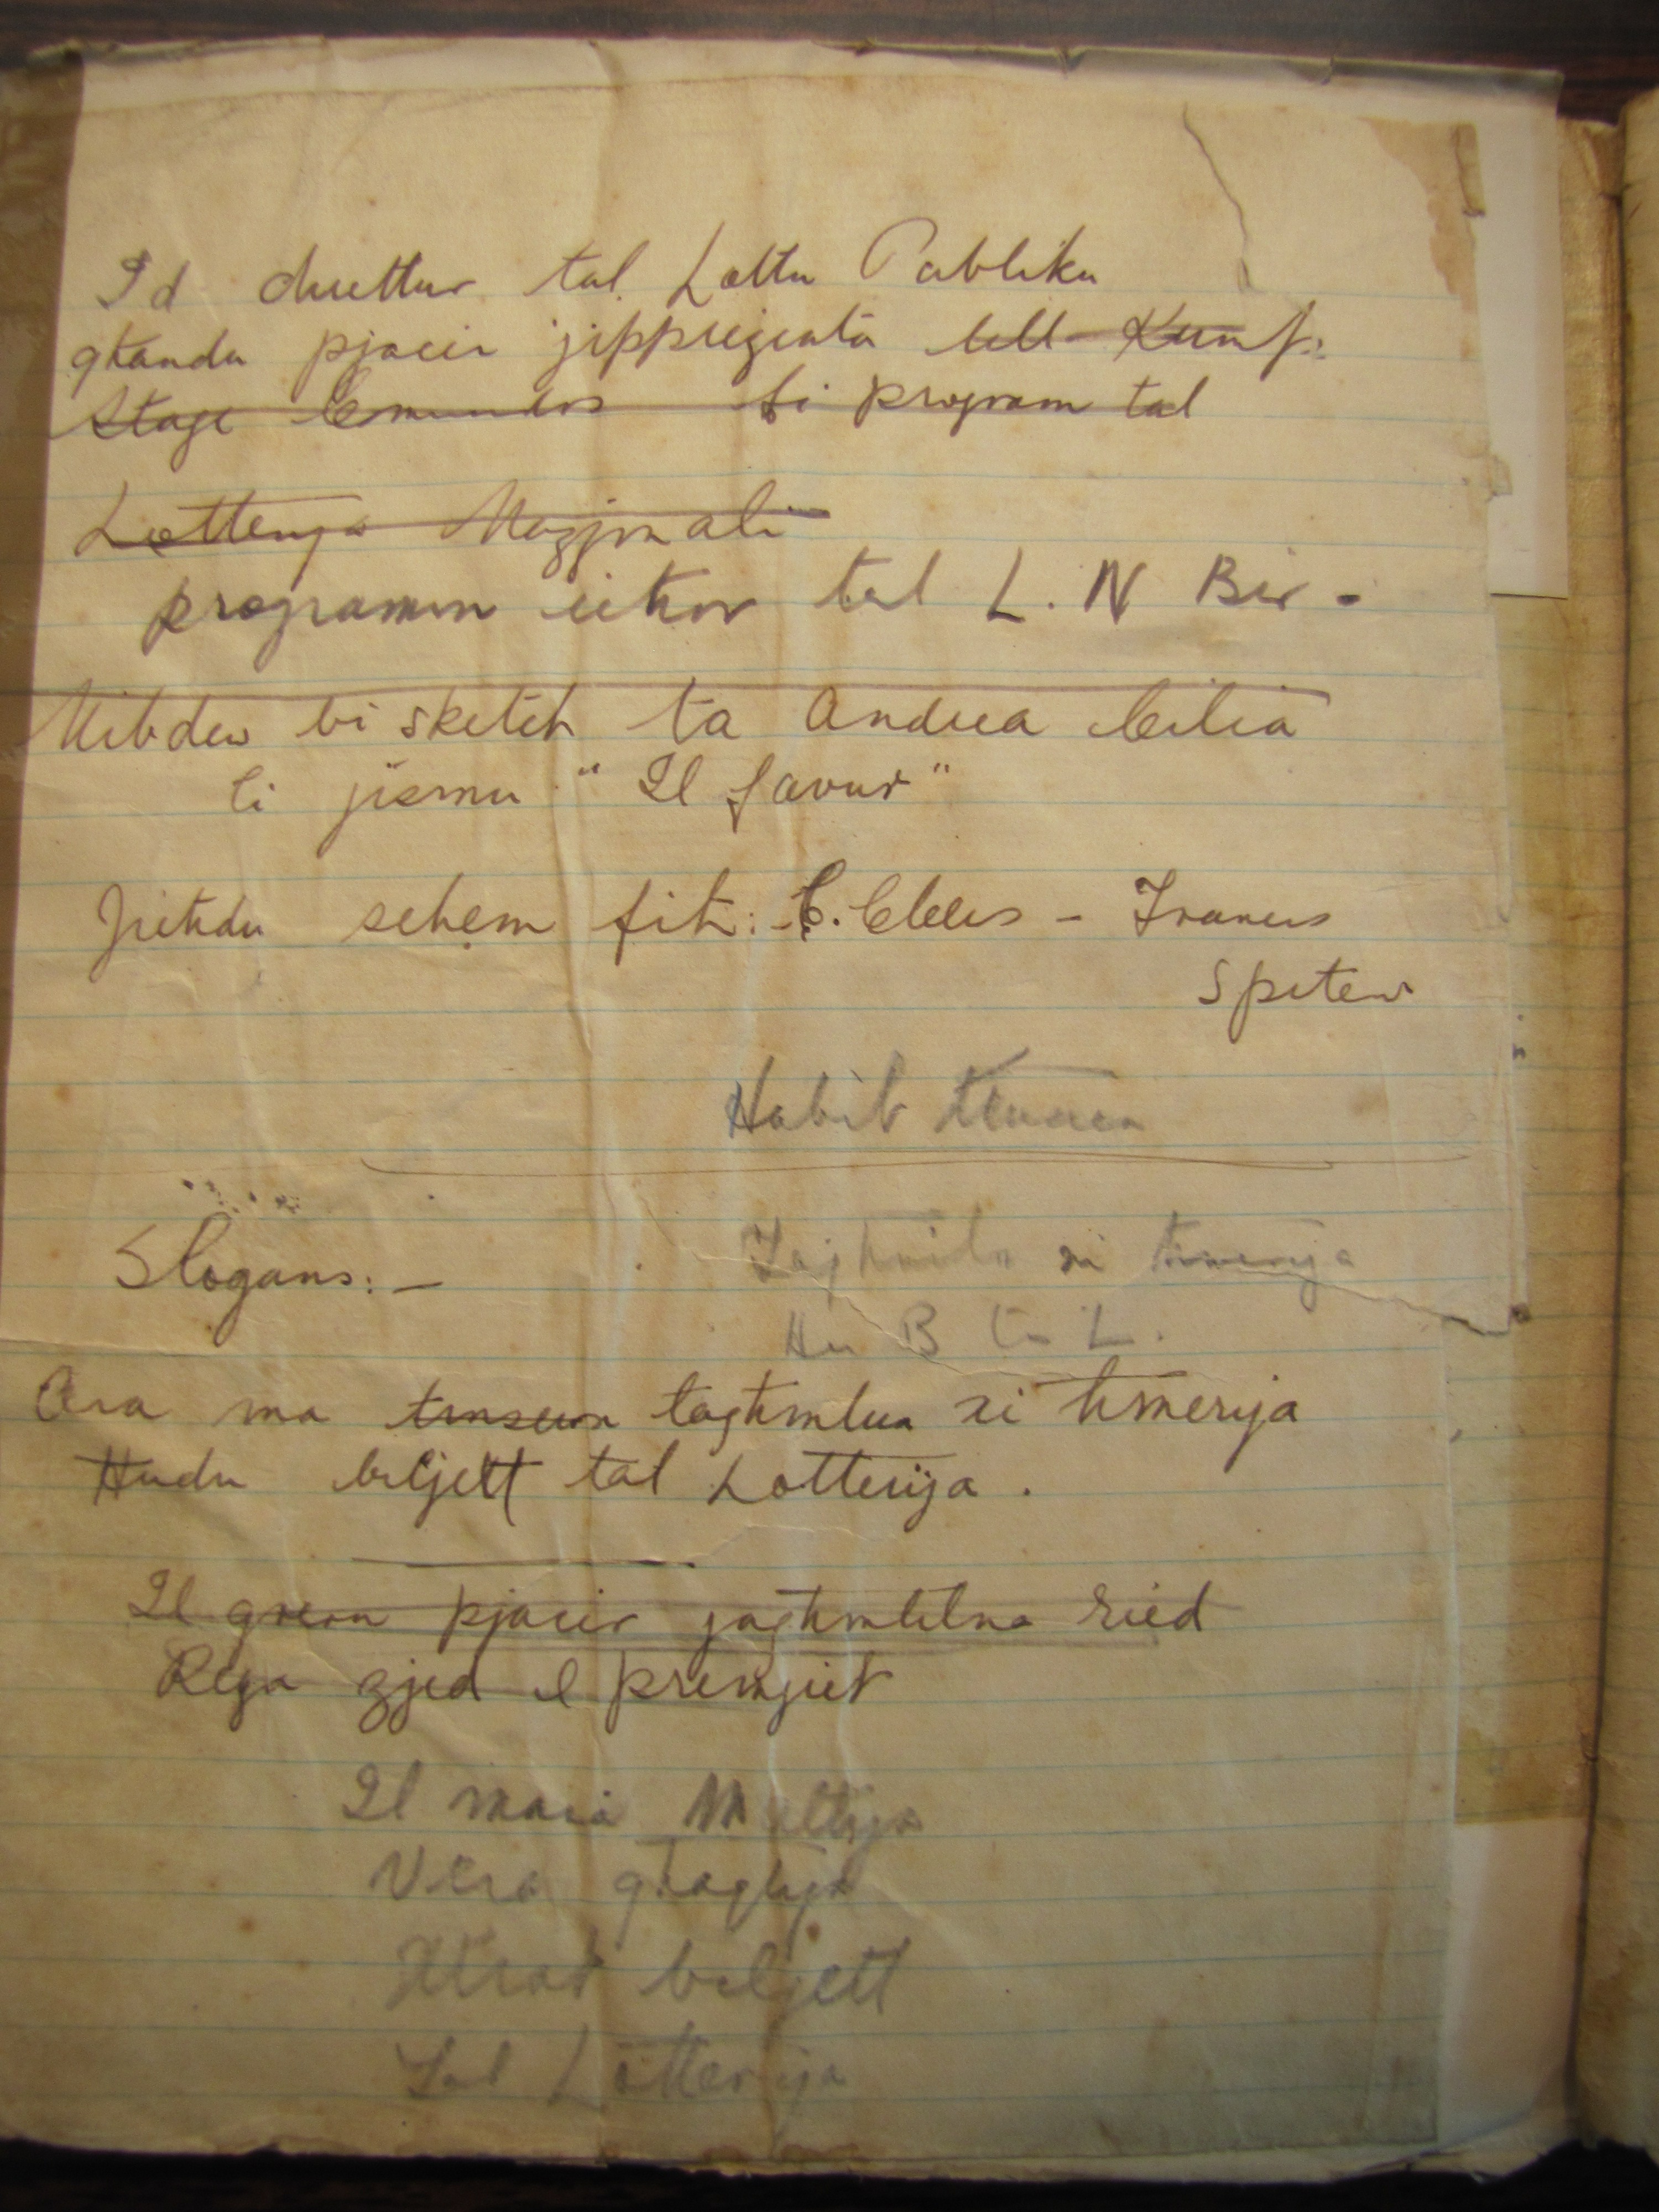 Id direttur tal Lottu Publiku
għandu pjacir jipprezenta lill Kump:
Stage Commandos fi program tal
Lotterija Nazzjonali
programm iehor tal L. N Bir -
Nibdew bi sketch ta Andrea Cilia
li jismu "Il favur"
Jiehdu sehem fih: - C. Clews - Francis
Spiteri
Habib
Slogans: -
xi hmerija
Hu B ta L.
Ara ma tagħmlux xi hmerija
Hudu biljett tal Lotterija.
Il pjacir jagħmlilna ried
Rega zjed il premjiet
Il mara Maltija
Vera għaqlija
Xtrat biljett
Tal Lotterija